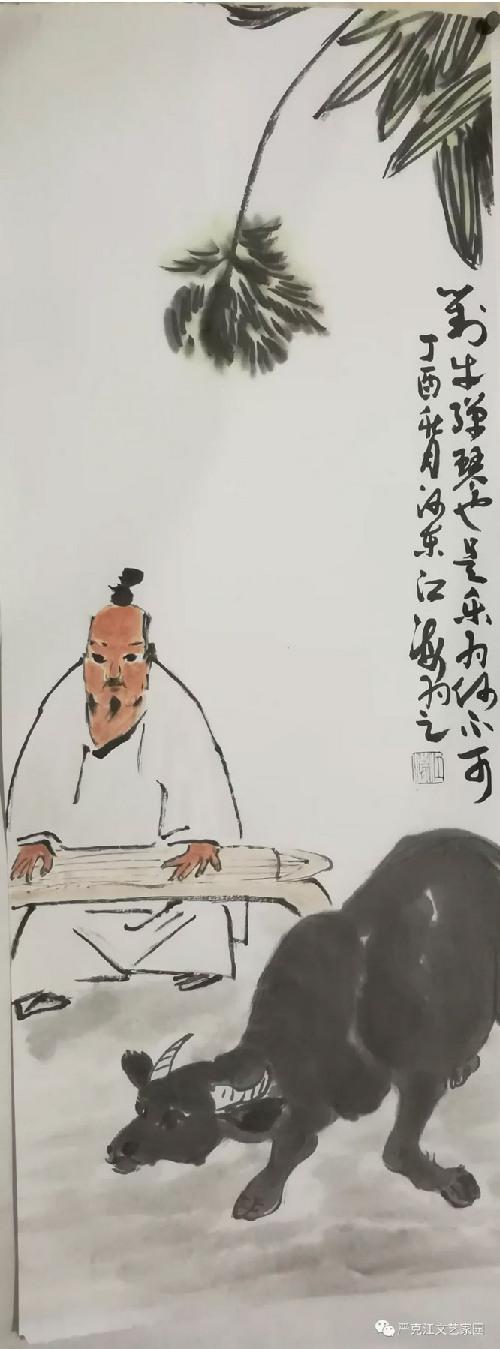 對牛弹琴也是乐为何不可
丁酉秋月河东江海为之
严克江文艺家园